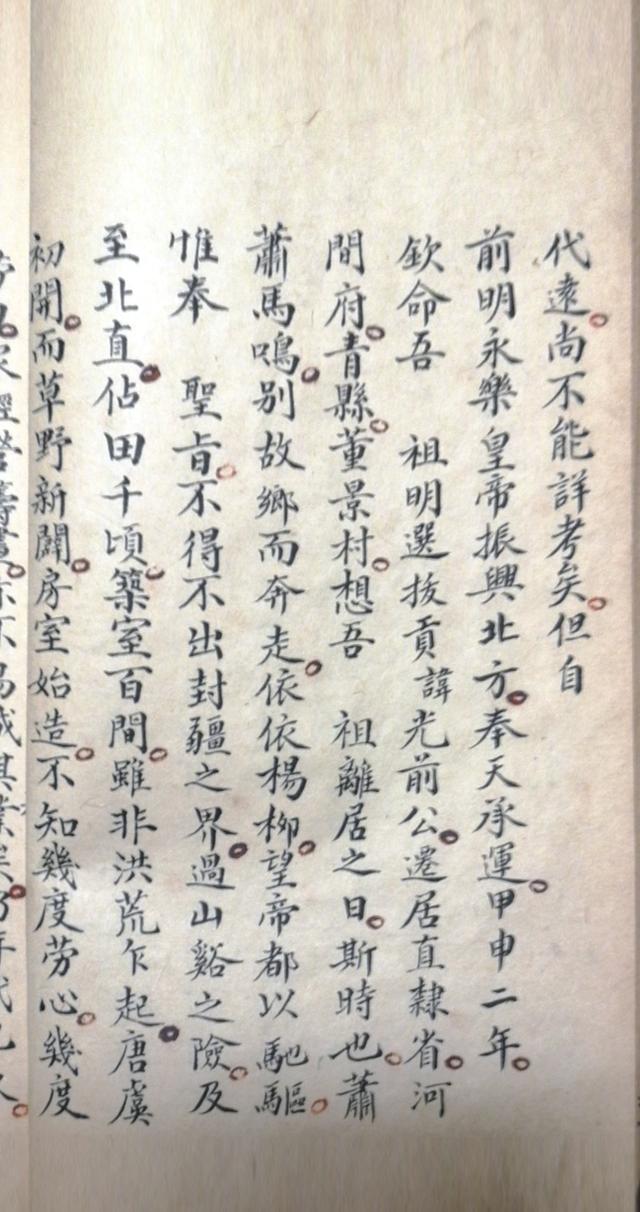 代遠。尚不能詳考矣。但自
前明永樂皇帝振興北方。奉天承運。甲申二年。
欽命吾 祖明選拔貢諱光前公。遷居直隸省。河
間府。青縣。董景村。想吾 祖離居之日。斯時也。蕭
蕭馬鳴。別故鄉而奔走。依依楊柳。望帝都以馳驅。
惟奉 聖旨。不得不出封疆之界。過山谿之險。及
至北直。佔田千頃。築室百間。雖非洪荒乍起。唐虞
初開。而草野新闢。房室始造。不知幾度劳心。幾度